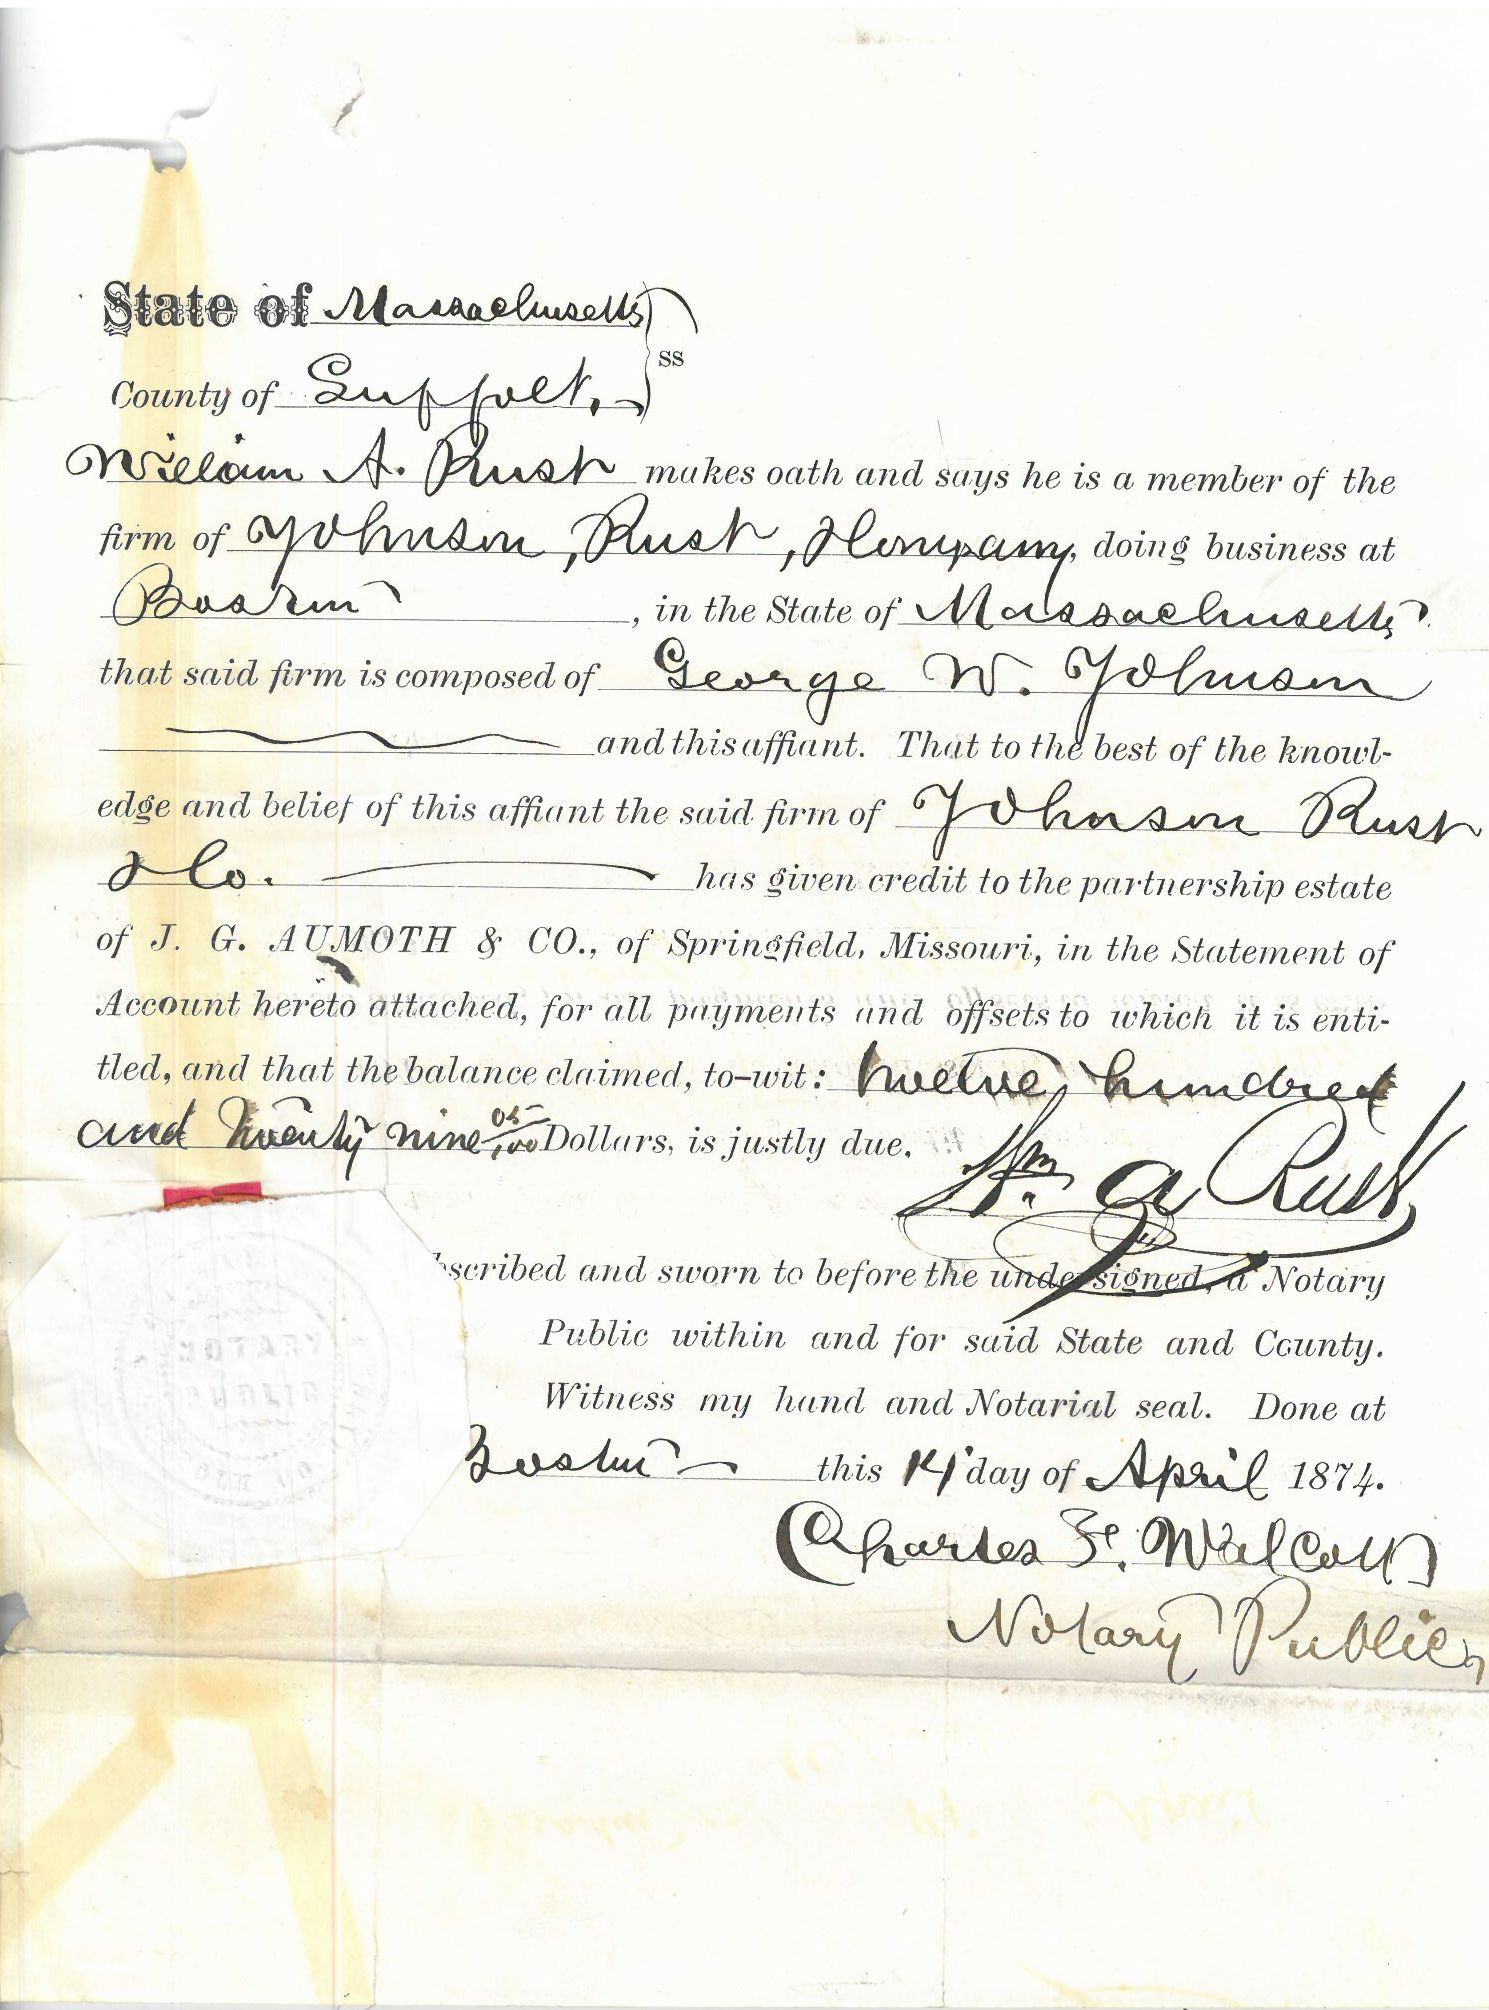 State of Massachusetts
ss
County of Suffolk.
William A. Rust makes oath and says he is a member of the
firm of Johnson, Rust, & Company, doing business at
Boston, in the State of Massachusetts
that said firm is composed of George W. Johnson
and this affiant. That to the best of the knowl-
edge and belief of this affiant the said firm of Johnson Rust
& Co. has given credit to the partnership estate
of J. G. AUMOTH & CO., of Springfield, Missouri, in the Statement of
Account hereto attached, for all payments and offsets to which it is enti-
tled, and that the balance claimed, to-wit: twelve hundred
and twenty nine 05/100 Dollars, is justly due.
Wm A Rust
bscribed and sworn to before the undersigned, a Notary
Public within and for said State and County.
Witness my hand and Notarial seal. Done at
Boston this 14 day of April 1874.
Charles F. Walcott
Notary Public